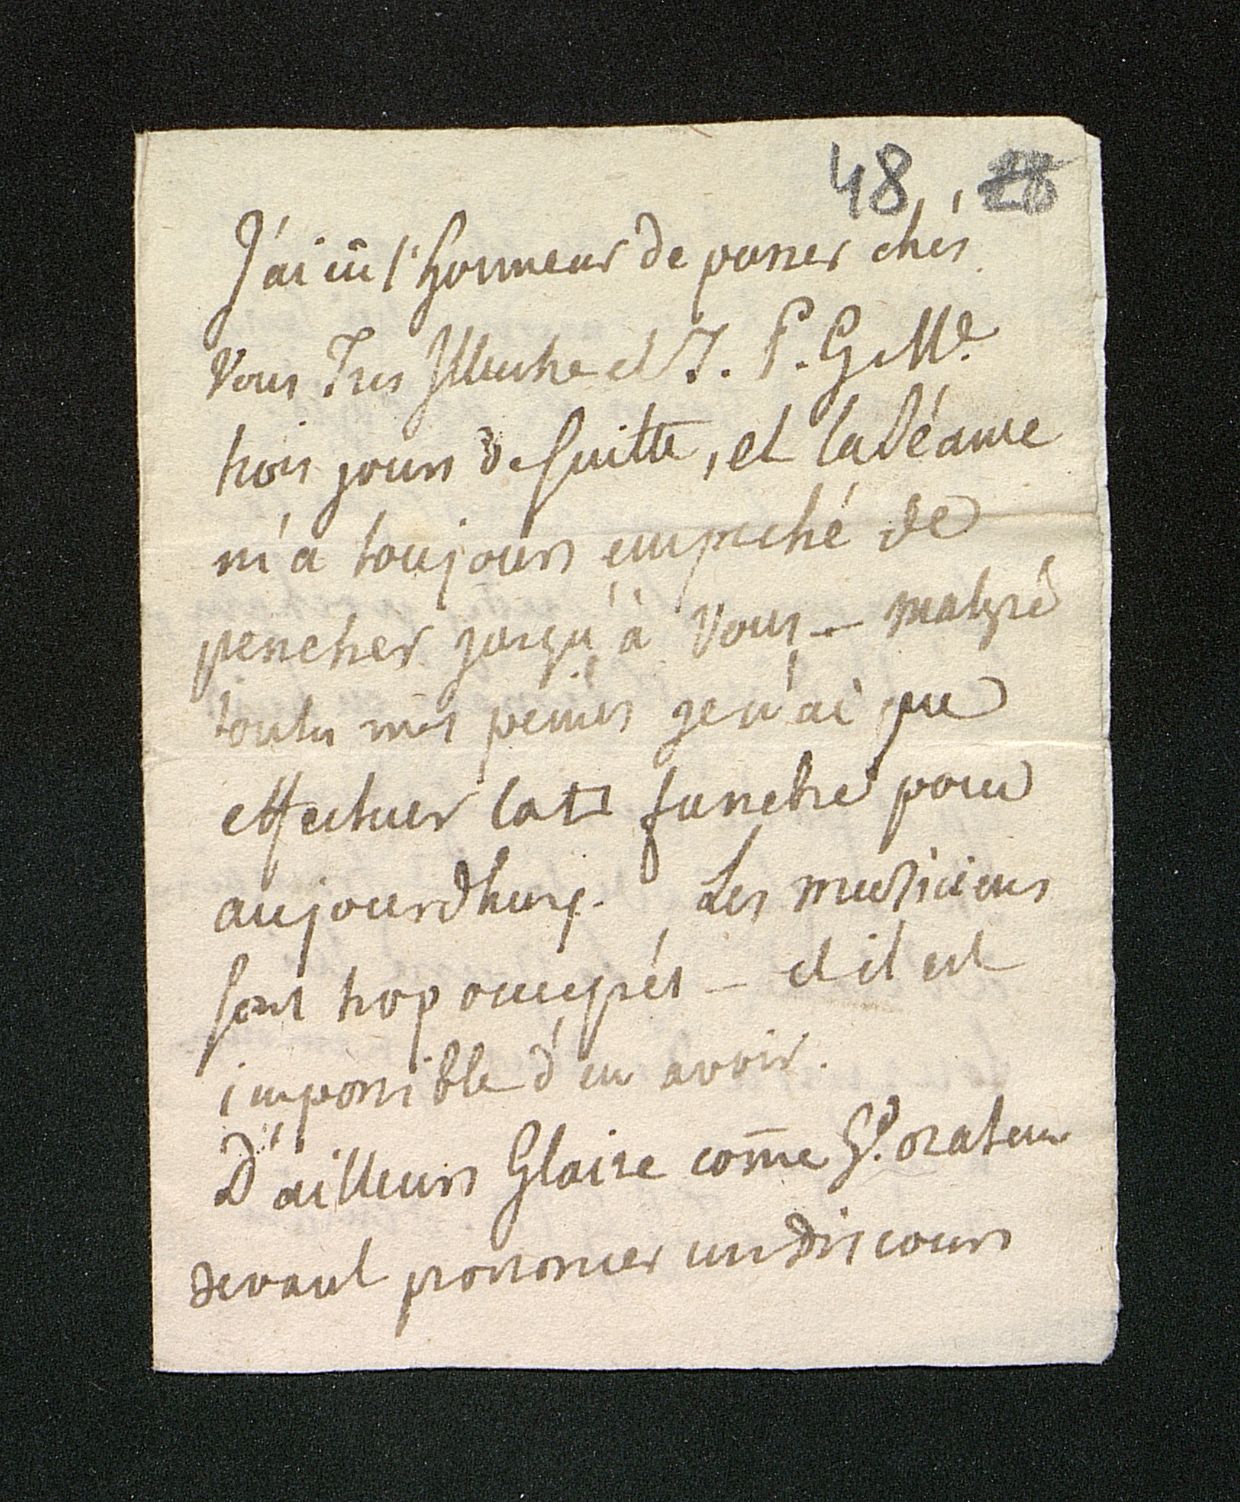 48 28
J'ai eû l'honneur de passer chés
Vous Tres Illustre et T. P. G. Me
trois jours de suitte, et la Séance
m'a toujours empeché de
pencher jusqu'à Vous — malgré
toutes mes peines je n'ai pu
effectuer la ▭ funebre pour
aujourdhuy. Les musiciens
sont trop occupés — et il est
impossible d'en avoir.
D'ailleurs Glaire come̅ Gd. orateur
devant prononcer un discours